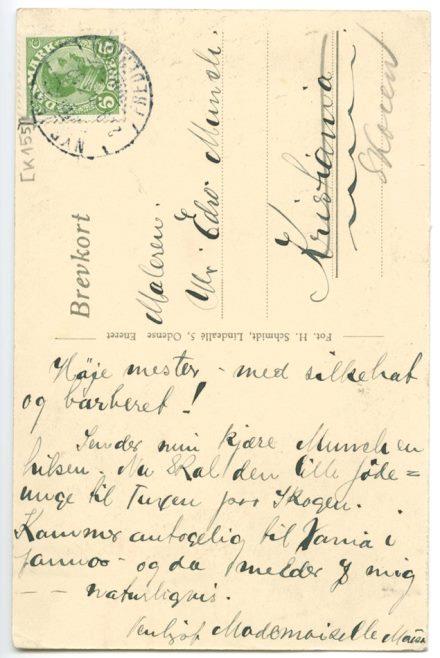 DANMARK
5 ØRE 5
NYBORG
[K155]
Brevkort
Maleren
Hr. Edv. Munch.
Kristiania
Skøyen
Fot. H. Schmidt, Lindeallé 5, Odense Eneret
Høje mester – med silkehat
og barberet!
Sender min kjære Munch en
hilsen. Nu skal den lille jøde=
unge til Tuxen paa Skagen.
Kommer antagelig til Xania i
januar – og da melder jeg mig
– – naturligvis.
Venligst Mademoiselle